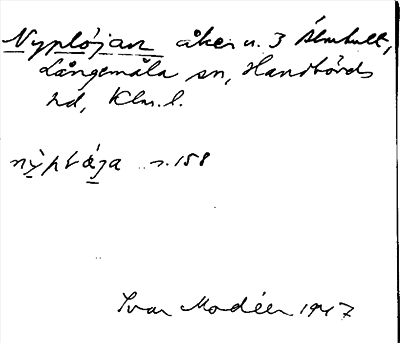 Nyplöjan åker u. 3 Älmhult,
Långemåla sn, Handbörds
hd, Klm. l.
nỳplǻja s. 158
Ivar Modéer 1947